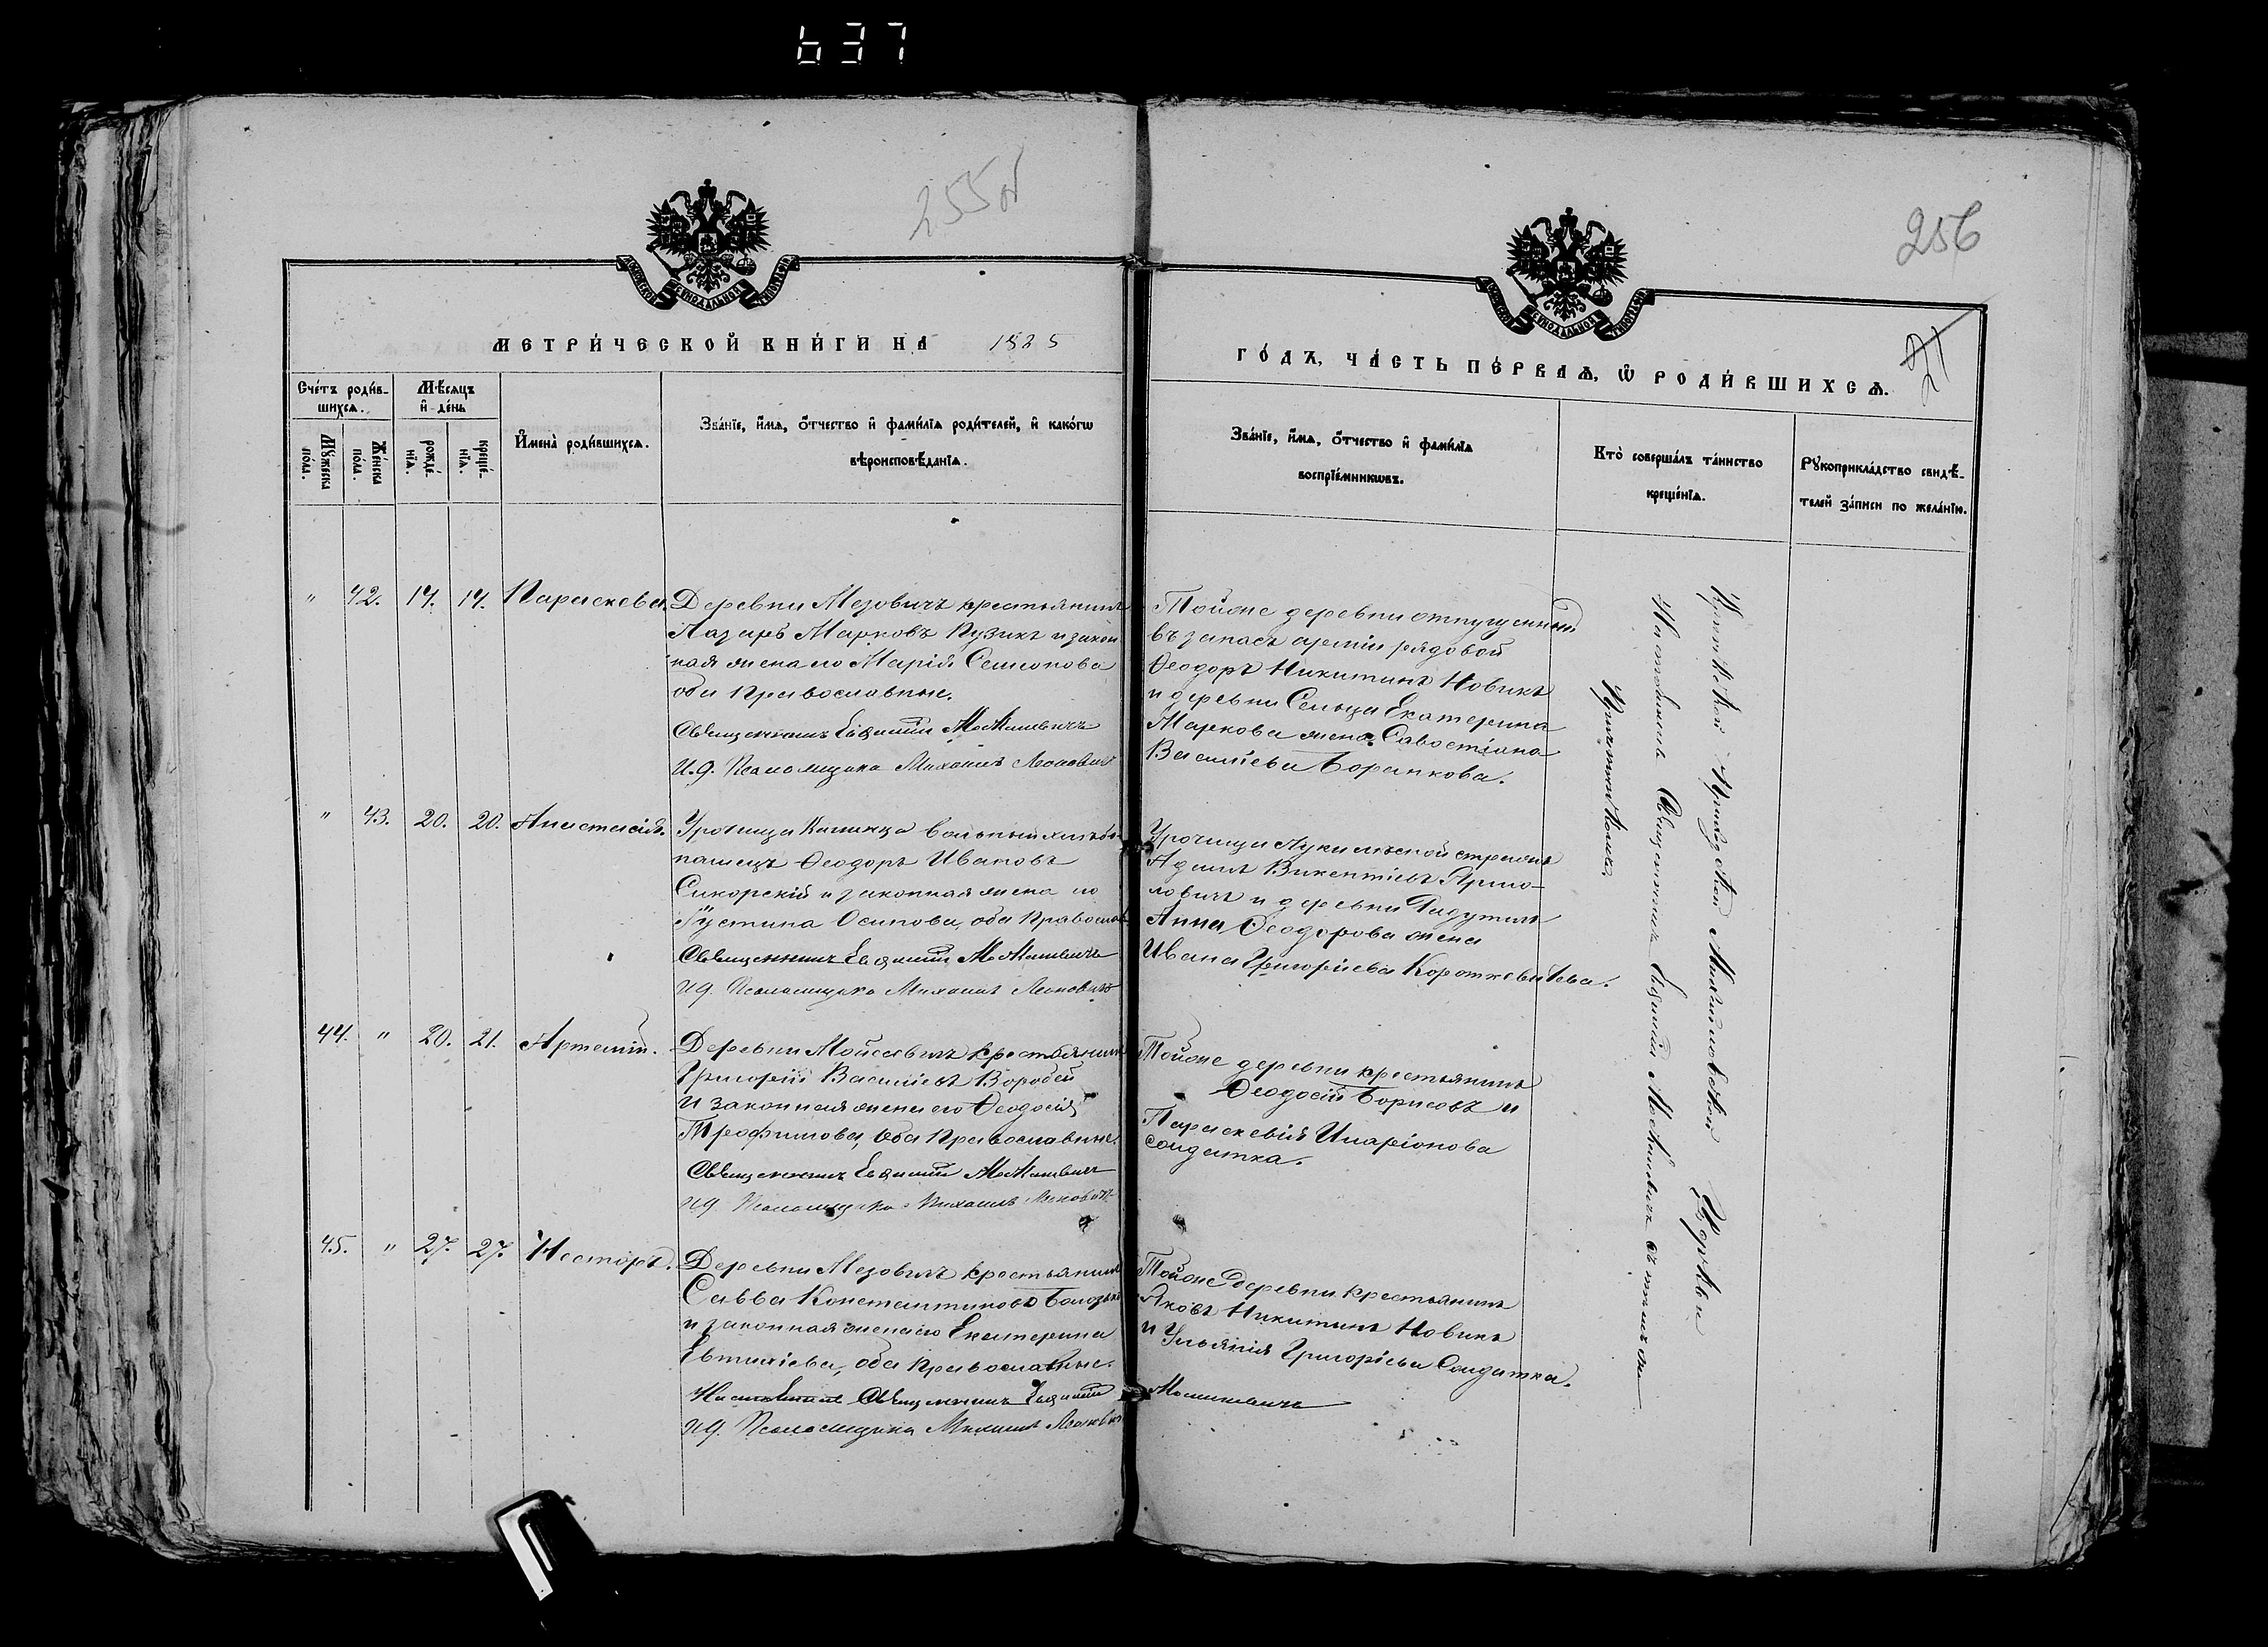 637
255об
256
21
МЕТРИ́ЧЕСКОЙ КНИ́ГИ НА 1885
ГО́ДЪ, ЧА́СТЬ ПЕ́РВАѦ, Ѽ РОДИ́ВШИХСѦ.
Сче́тъ роди́в-
шихсѧ.
Мꙋ́жеска по́ла.
Же́нска по́ла.
Мѣ́сѧцъ и҆ де́нь
рожде́-
нїѧ.
креще́-
нїѧ.
И҆мена̀ роди́вшихсѧ.
Зва́нїе, и҆́мѧ, ѻ҆́тчество и҆ фами́лїѧ роди́телей, и҆ како́гѡ
вѣроисповѣ́данїѧ.
Зва́нїе, и҆́мѧ, ѻ҆́тчество и҆ фами́лїѧ
воспрїе́мникѡвъ.
Кто̀ соверша́лъ та́инство
креще́нїѧ.
Рꙋкоприкла́дство свидѣ́-
телей за́писи по жела́нїю.
" 42. 17. 17. Параскева.
Деревни Мезовичъ крестьянинъ
Лазарь Марковъ Кузикъ и закон
ная жена его Марія Семионова
оба православные.
Священникъ Евфимій
И.д. Псаломщика Михаилъ
Тойже деревни отпущенный
въ запасъ арміи рядовой
Ѳеодоръ Никитинъ Новикъ
и деревни Сельца Екатерина
Маркова жена Савостіана
Василіева Боранкова.
" 43. 20. 20. Анастасія.
Урочища вольный хлѣбо
пашецъ Ѳеодоръ Ивановъ
Сикорскій и законная жена его
Іустина Осипова, оба православ
Священникъ Евфимій
И.д. Псаломщика Михаилъ
Урочища
Адамъ Викентіевъ Ярмо-
ловичъ и деревни
Анна Ѳеодорова жена
Ивана Григоріева Короткевичева.
44. " 20. 21. Артемій.
Деревни Мойсевичъ крестьянинъ
Григорій Василіевъ Воробей
и законная жена его Ѳеодосія
Трофимова, оба православные.
Священникъ Евфимій
И.д. Псаломщика Михаилъ
Тойже деревни крестьянинъ
Ѳеодосій Борисовъ и
Параскевія Иларіонова
солдатка.
45. " 27. 27. Несторъ.
Деревни Мезовичъ крестьянинъ
Савва Константиновъ
и законная жена его Екатерина
Евтихіева, оба православные.
Священникъ Евфимій
И.д. Псаломщика Михаилъ
Тойже деревни крестьянинъ
Яковъ Никитинъ Новикъ
и Ульянія Григоріева Солдатка.
Приходской Михайловской Церкви
Священникъ Евфимій